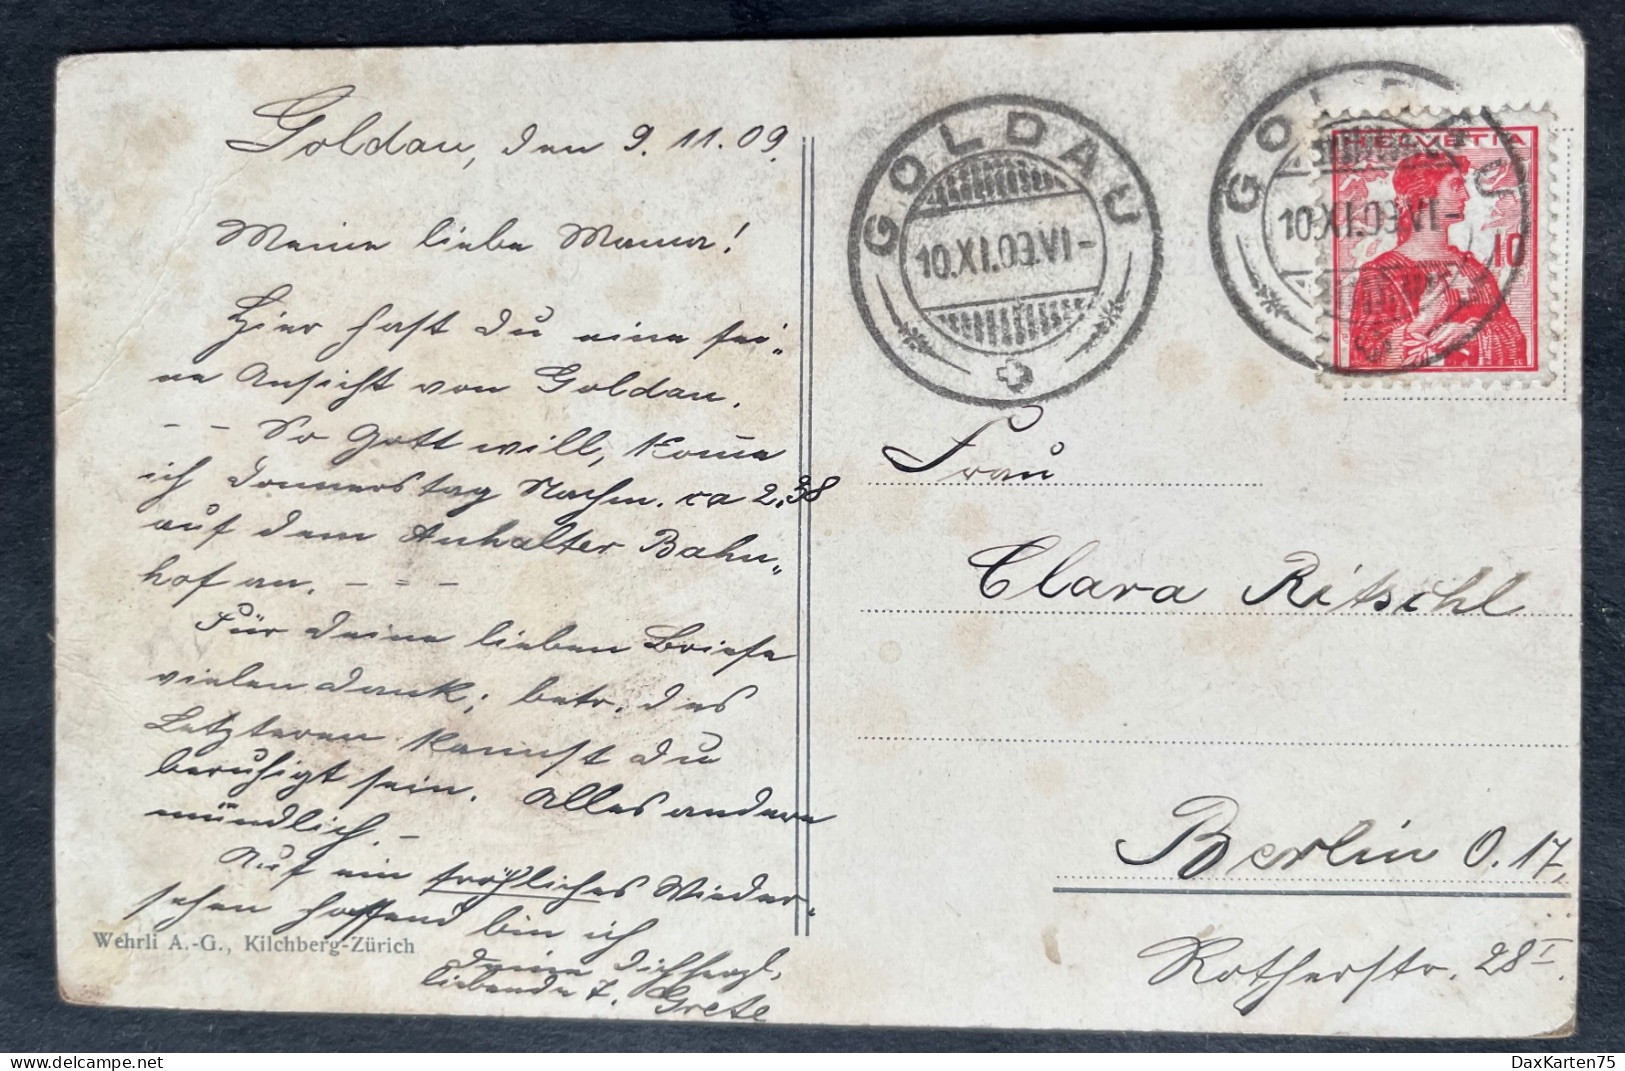 Goldau, den 9.11.09.
Meine liebe Mama!
Hier hast Du eine sei„
ne Ansicht von Goldau.
- - So Gott will, komme
ich Donnerstag Nachm. ca 2.38
auf dem Anhalter Bahn„
hof an. - = -
Für Deine lieben Briefe
vielen Dank; betr. des
Letzteren kannst Du
beruhigt sein. Alles andere
mündlich. -
Auf ein fröhliches Wieder„
sehen hoffend bin ich
Deine Dich herzl.
liebende T. Grete
Wehrli A.-G., Kilchberg-Zürich
GOLDAU
10.XI.09.VI-
GOLDAU
10.XI.09.VI-
HELVETIA
10
Frau
Clara Ritschl
Berlin O. 17,
Rotherstr. 28 I.
DaxKarten75